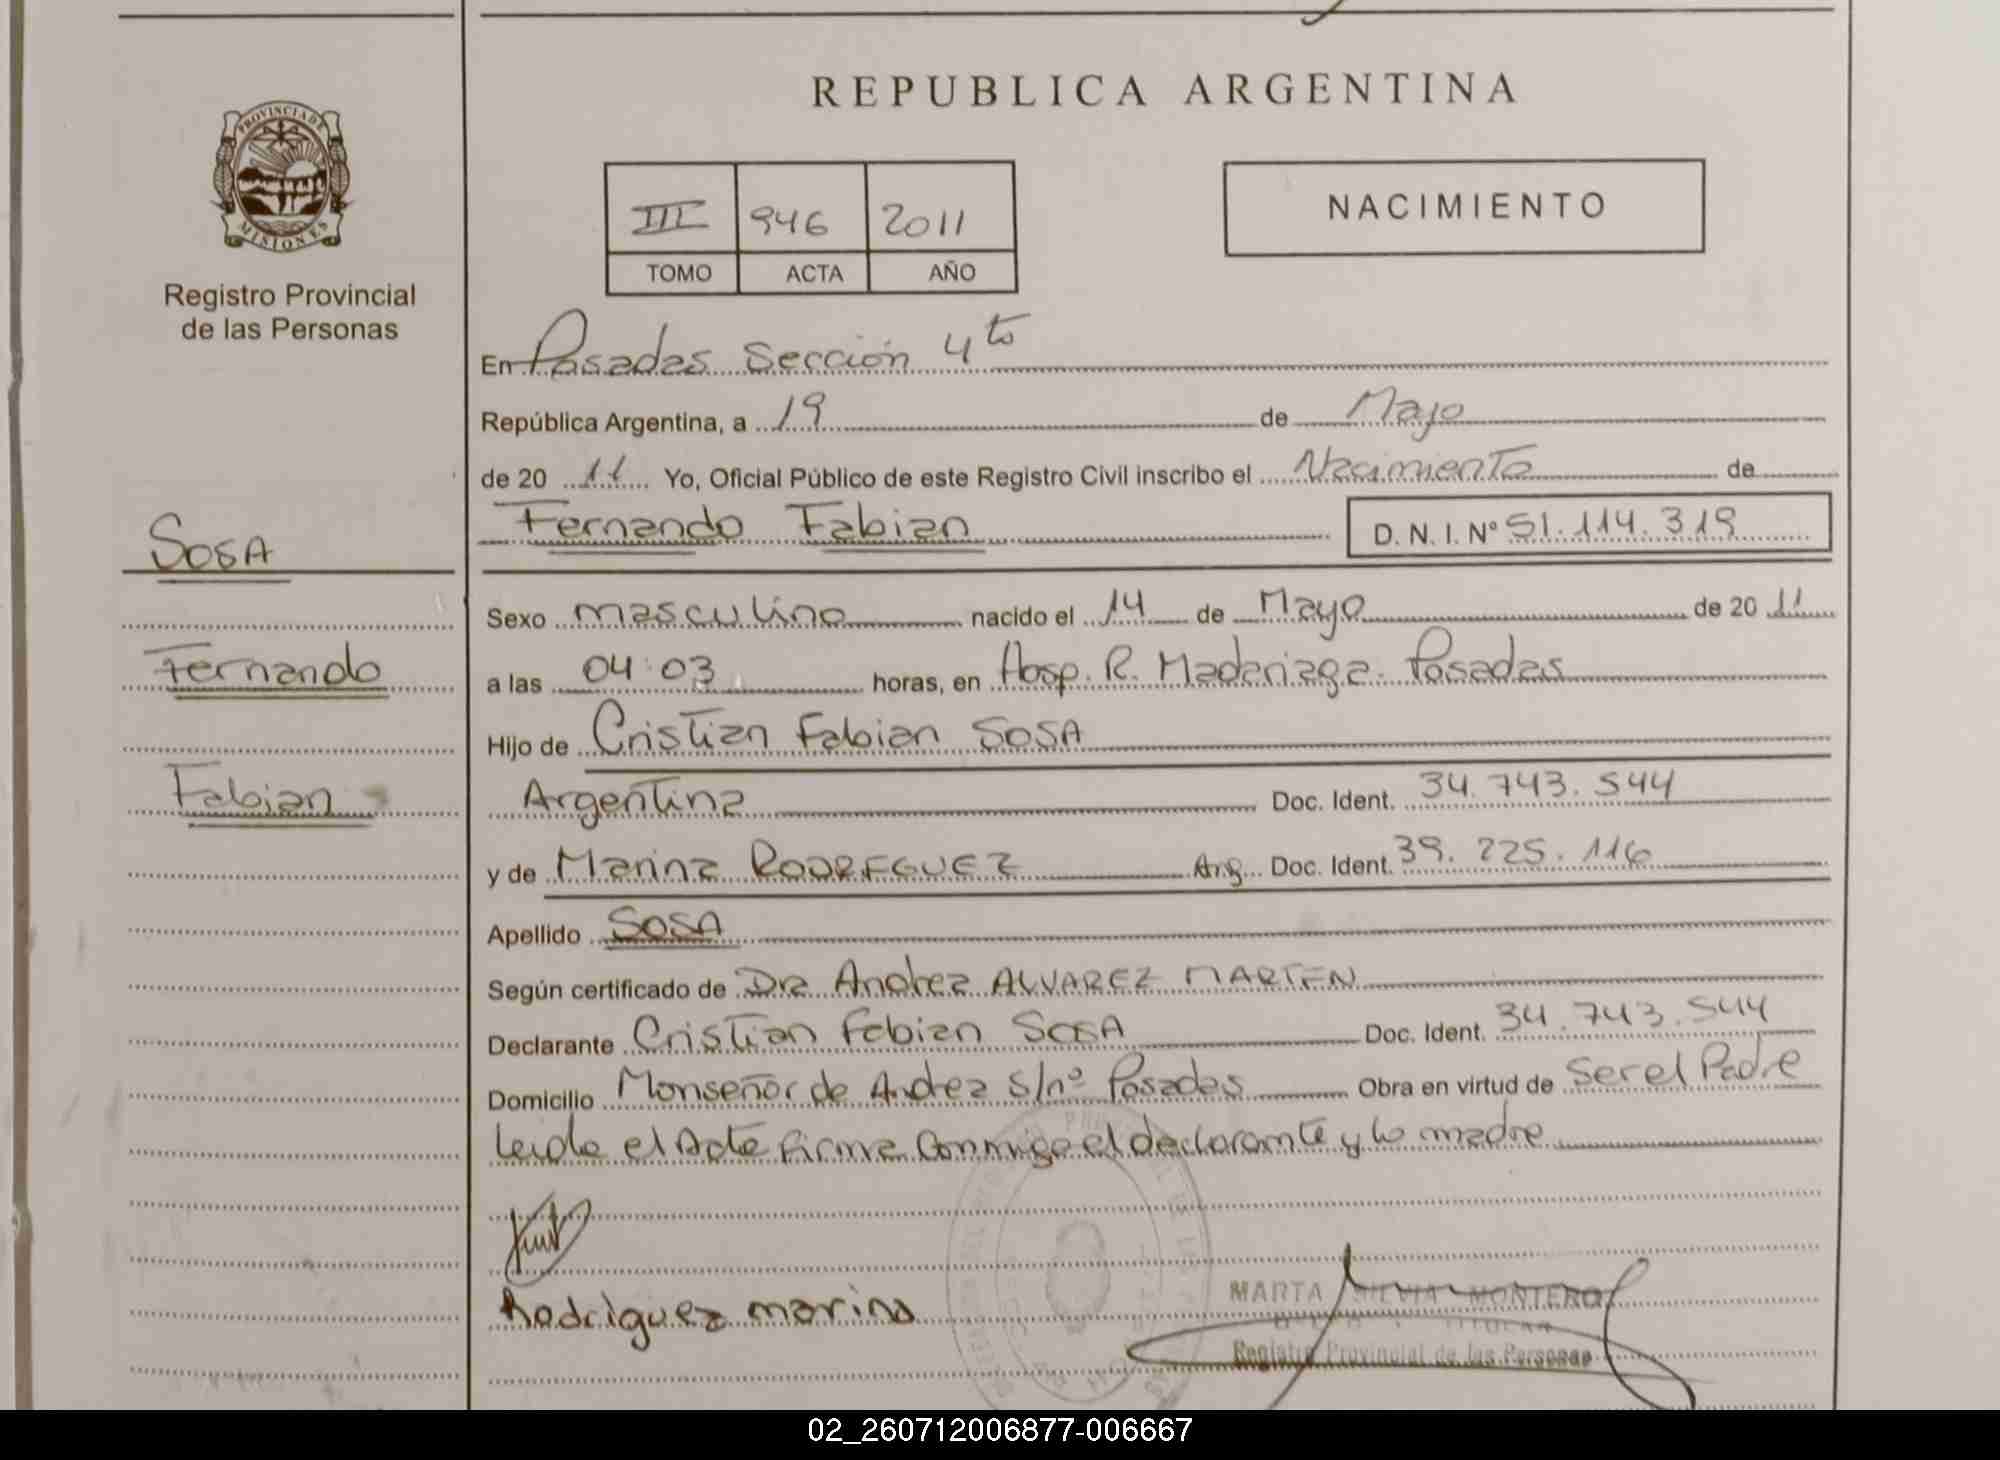 REPUBLICA ARGENTINA
PROVINCIA DE
MISIONES
Registro Provincial
de las Personas
III 946 2011
TOMO ACTA AÑO
NACIMIENTO
En Posadas Sección 4to
República Argentina, a 19 de Mayo
de 20 11 Yo, Oficial Público de este Registro Civil inscribo el Nacimiento de
Fernando Fabian D. N. I. Nº 51.114.319
SOSA
Fernando
Fabian
Sexo masculino nacido el 14 de Mayo de 20 11
a las 04:03 horas, en Hosp. R. Madariaga. Posadas
Hijo de Cristian Fabian SOSA
Argentina Doc. Ident. 34.743.544
y de Marina RODRIGUEZ Arg. Doc. Ident. 39.225.116
Apellido SOSA
Según certificado de Dra Andrea ALVAREZ MARTIN
Declarante Cristian Fabian SOSA Doc. Ident. 34.743.544
Domicilio Monseñor de Andrea S/nº Posadas Obra en virtud de ser el Padre
leida el Acta firma conmigo el declarante y la madre
Rodriguez marina
MARTA SILVIA MONTERO
TITULAR
Registro Provincial de las Personas
02_260712006877-006667